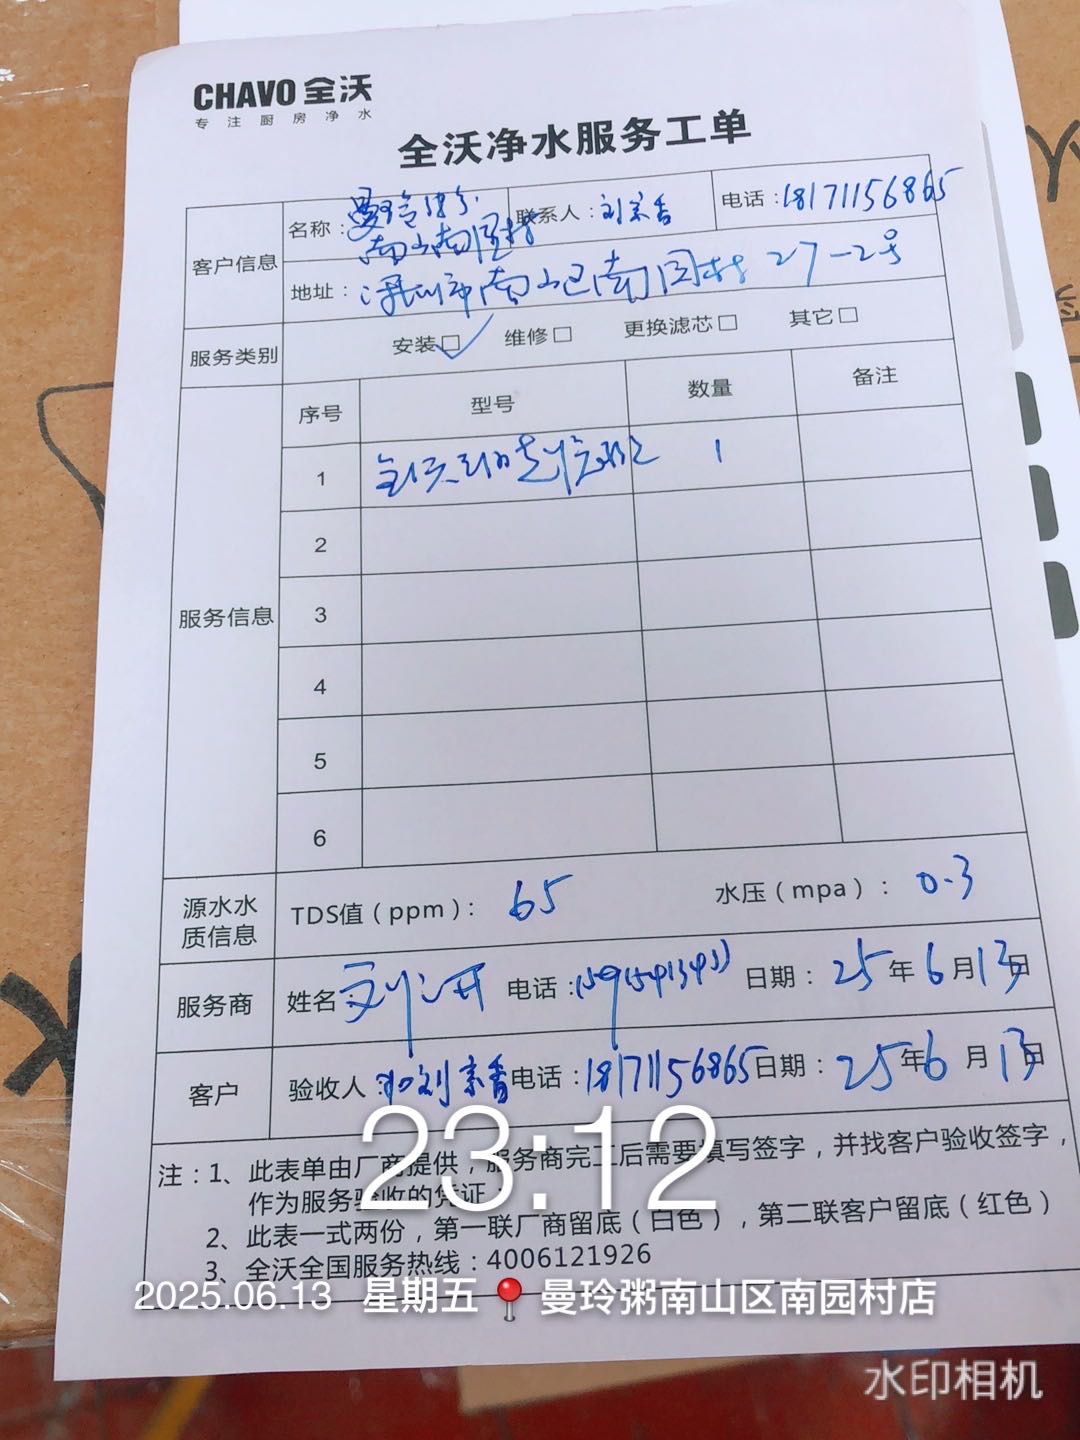 CHAVO 全沃
专注厨房净水
全沃净水服务工单
客户信息 名称：曼玲粥 南山南园村 联系人：刘宗香 电话：18171156865
地址：深圳市南山区南园村27-2号
服务类别 安装☑ 维修□ 更换滤芯□ 其它□
服务信息 序号 型号 数量 备注
1 全沃 1
2
3
4
5
6
源水水质信息 TDS值（ppm）：65 水压（mpa）：0.3
服务商 姓名：刘 电话： 日期：25年6月13日
客户 验收人：刘宗香 电话：18171156865 日期：25年6月13日
注：1、此表单由厂商提供，服务商完工后需要填写签字，并找客户验收签字，
作为服务验收的凭证
2、此表一式两份，第一联厂商留底（白色），第二联客户留底（红色）
3、全沃全国服务热线：4006121926
23:12
2025.06.13 星期五 曼玲粥南山区南园村店
水印相机